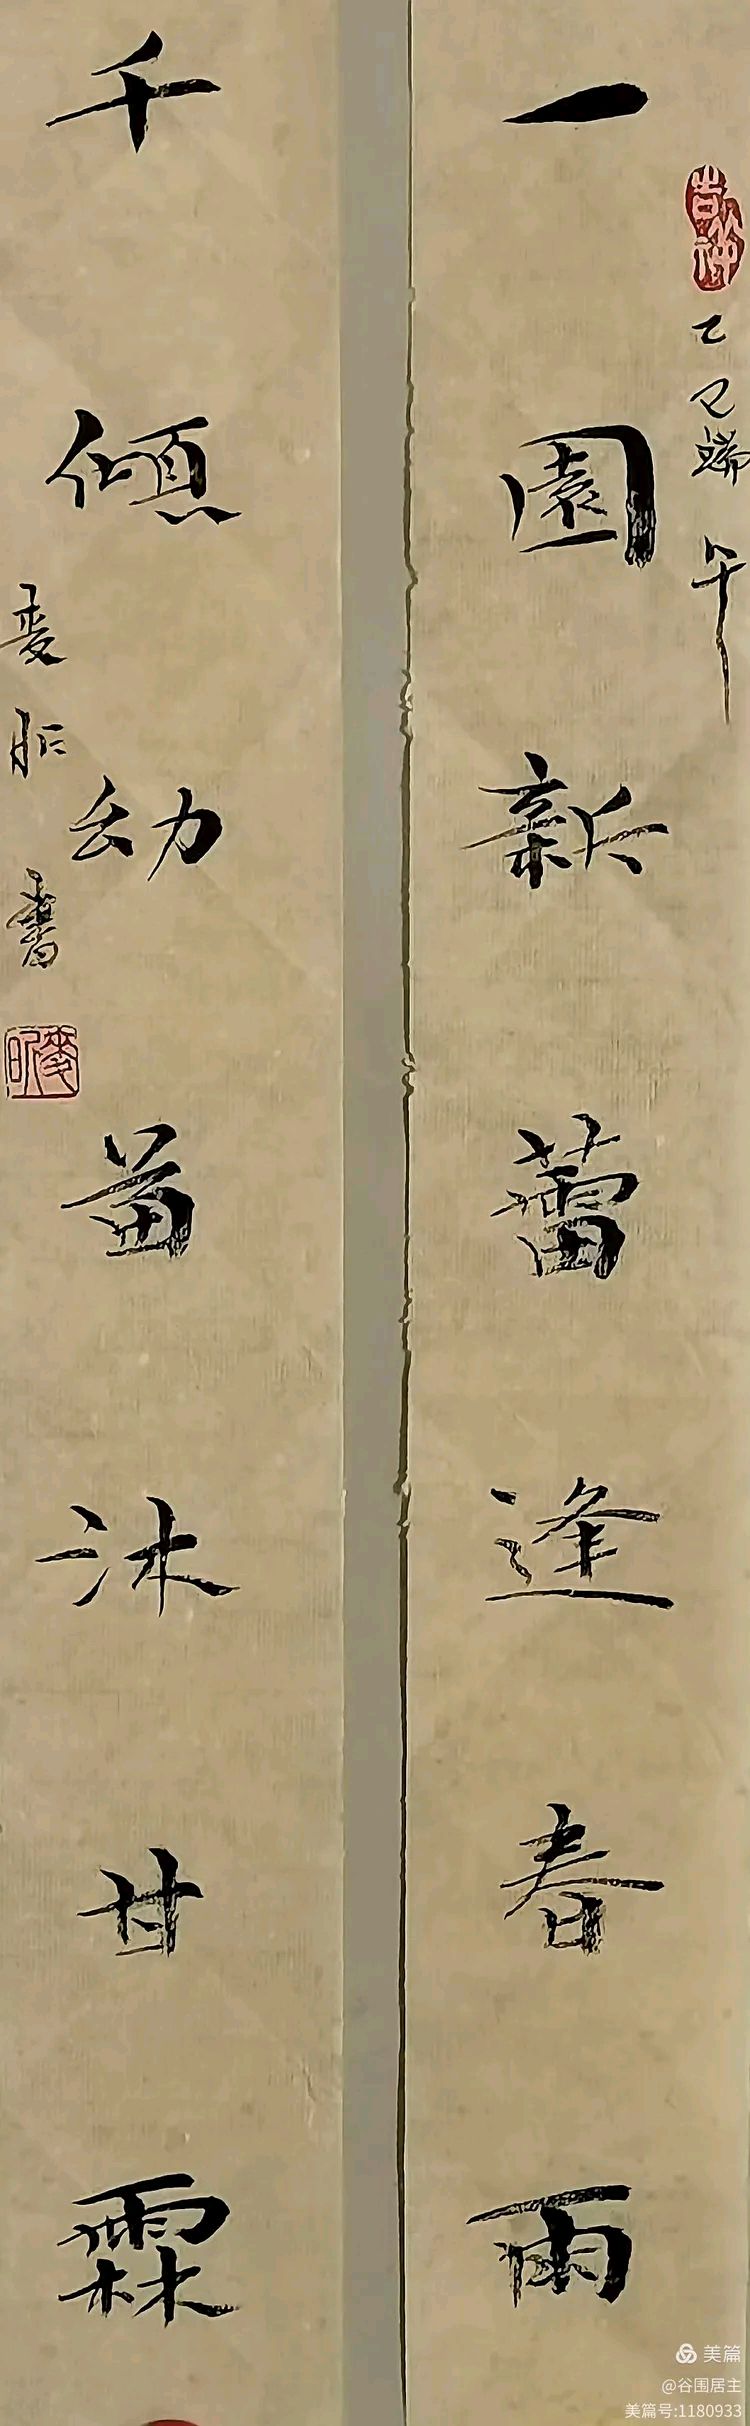 一園新蕾逢春雨
乙巳端午
千傾幼苗沐甘霖
麦昕書
美篇
@谷围居主
美篇号:1180933